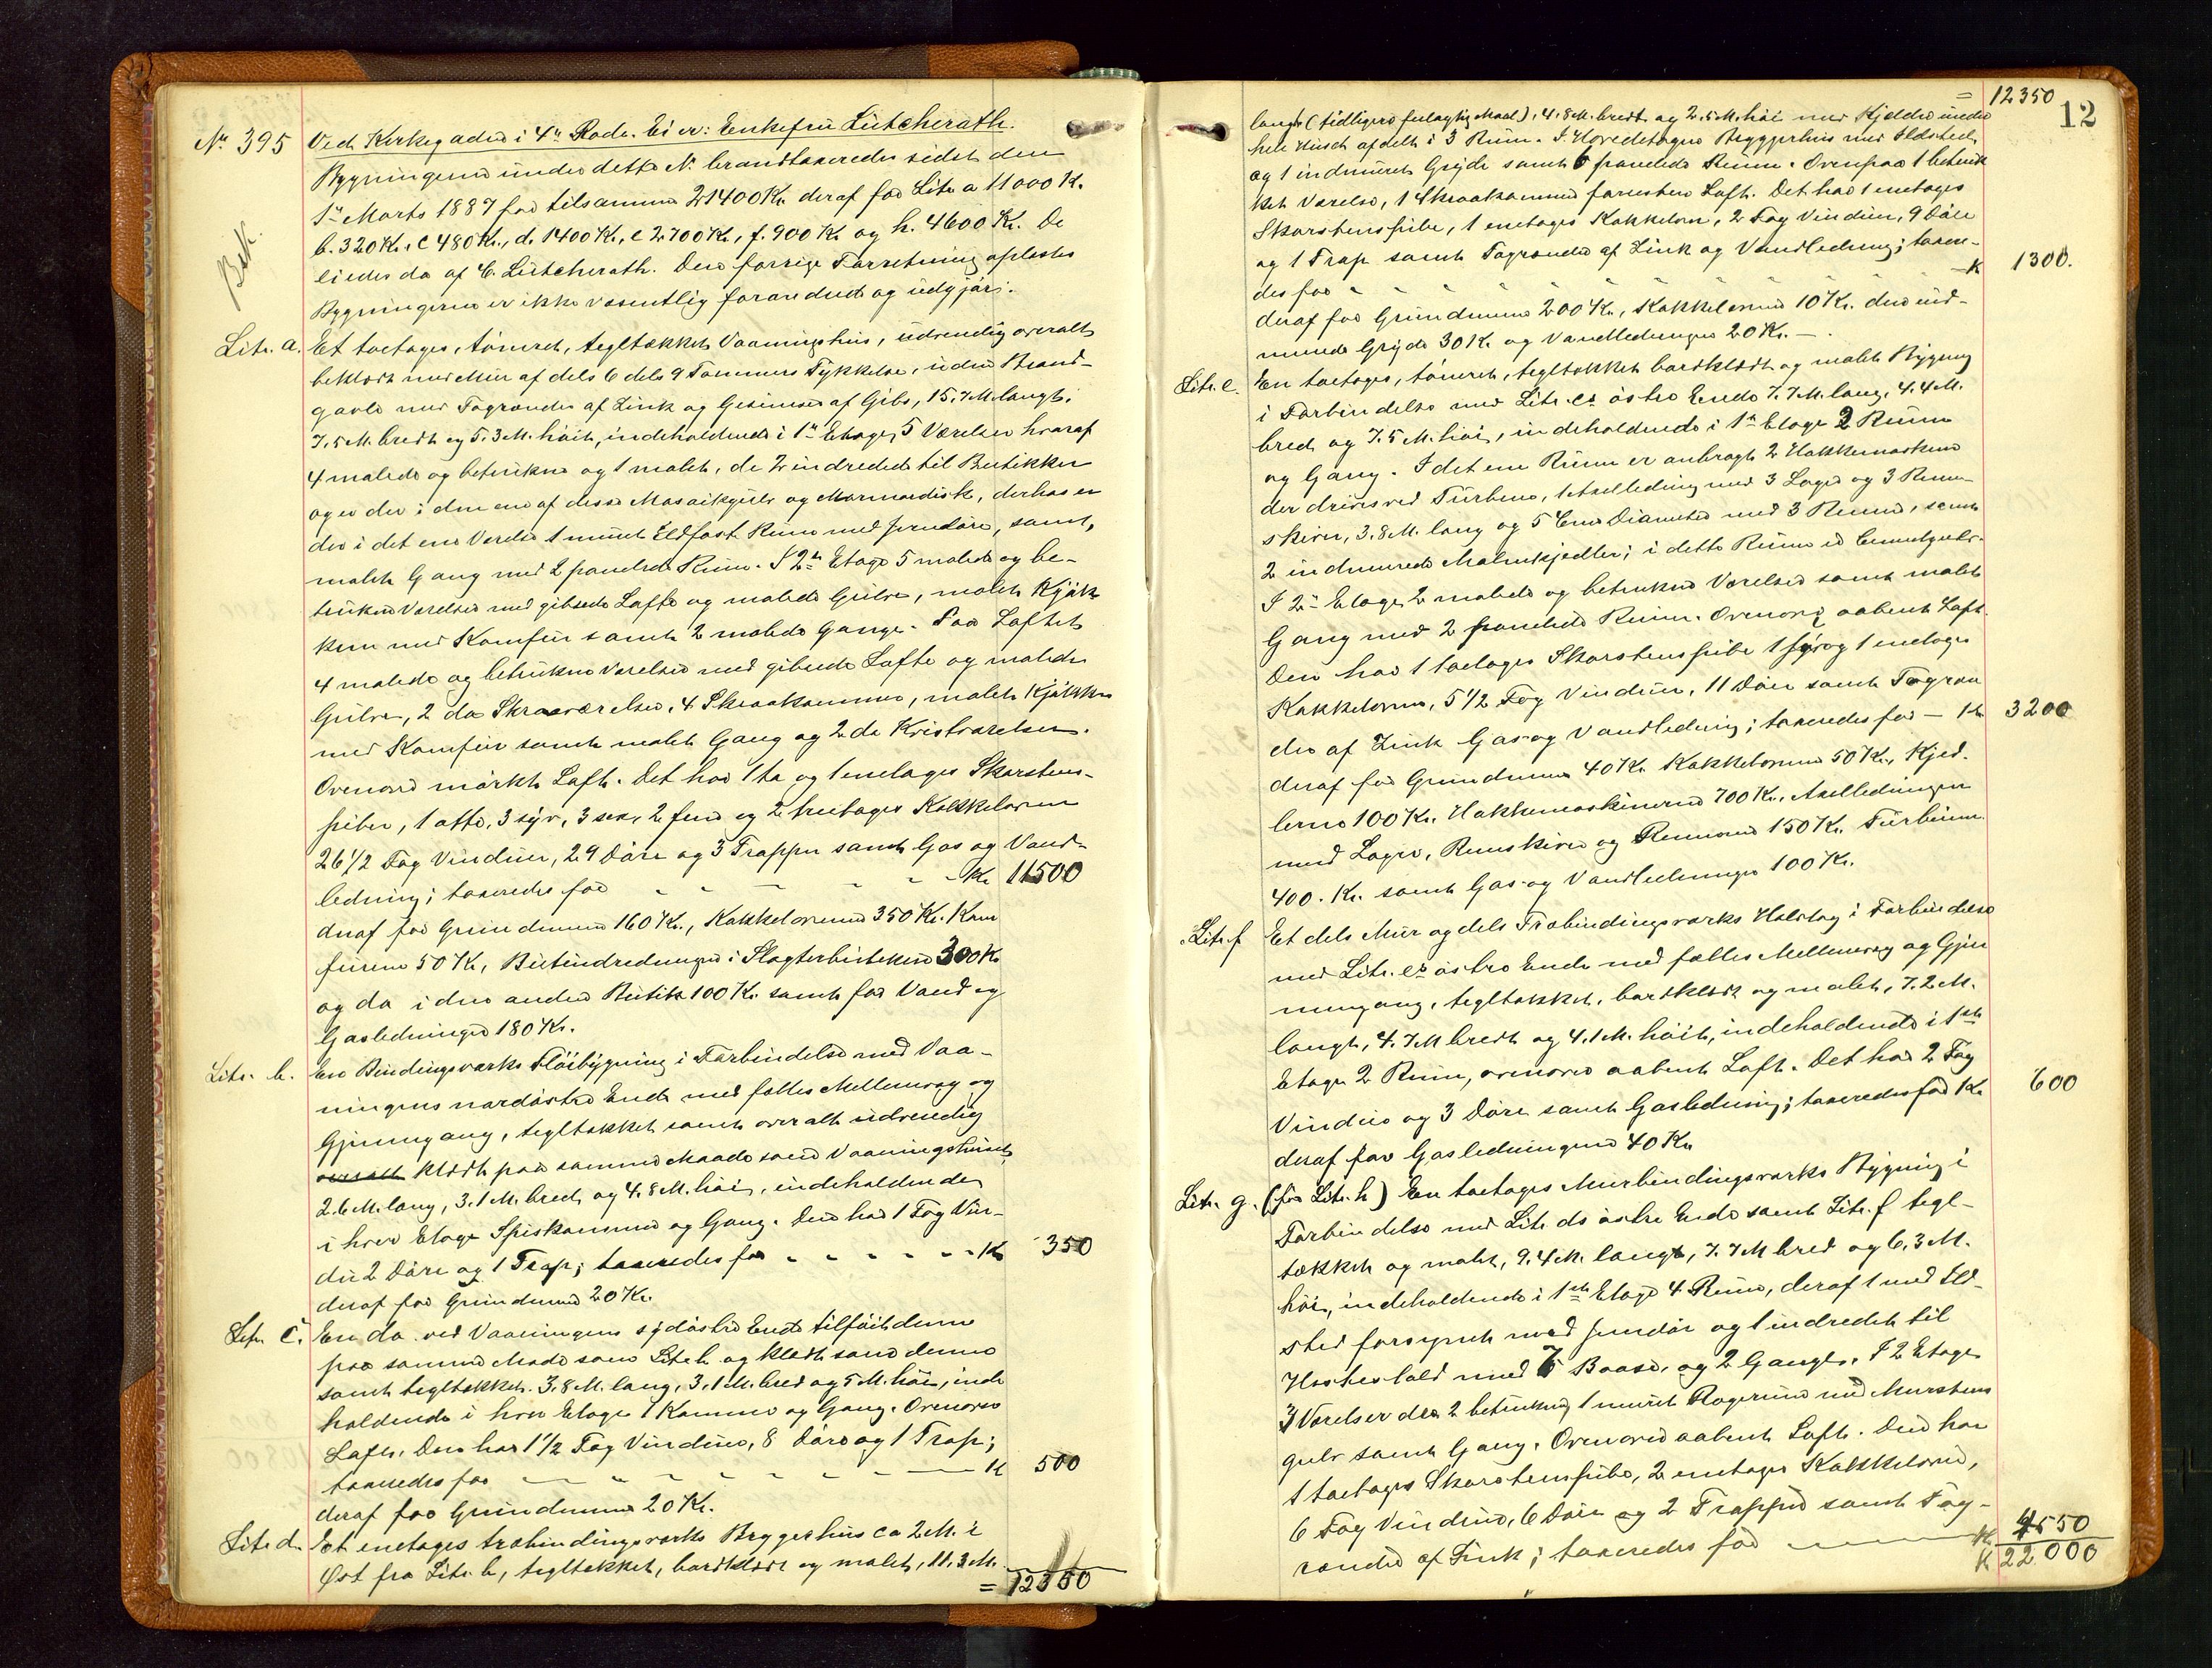 No 395 Ved Kirkegaden i 4de Rode. Eier: Enkefru Lütcherath.
Bygningerne under dette No brandtaxeredes sidst den
1ste Marts 1887 for tilsammen 21400 Kr. deraf for Litr a 11000 K.
b. 320 Kr., c 480 Kr., d. 1400 Kr., e 2700 Kr., f. 900 Kr. og h. 4600 Kr. De
eiedes da af C. Lütcherath. Den forrige Forretning oplæstes
Bet.
Bygningerne er ikke væsentlig forandrede og udgjør:
Litr. a. Et toetages, tømret, tegltækket Vaaningshus, udvendig overalt
beklædt med Mur af dels 6 dels 9 Tommers Tykkelse, uden Brand-
gavle med Tagrender af Zink og Gesimser af Gibs, 15.7 M. langt,
7.5 M. bredt og 5.3 M. høit, indeholdende i 1ste Etage, 5 Værelser hvoraf
4 malede og betrukne og 1 malet, de 2 indredede til Butikker
og er der i den ene af disse Mosaikgulv og Marmordisk, derhos er
der i det ene Værelse 1 muret Ildfast Rum med Jerndøre, samt
malet Gang med 2 panelede Rum. I 2den Etage 5 malede og be-
trukne Værelser med gibsede Lofte og malede Gulve, malet Kjøk
ken med Komfur samt 2 malede Gange. Paa Loftet
4 malede og betrukne Værelser med gibsede Lofte og malede
Gulve, 2 do Skraaværelser, 4 Skraakammer, malet Kjøkken
med Komfur samt malet Gang og 2 do Kvistværelser.
Ovenover mørkt Loft. Det har 1 to og 1 enetages Skorstens-
piber, 1 otte, 3 syv, 3 sex, 2 fem og 2 treetages Kakkelovne
26 1/2 Fag Vinduer, 29 Døre og 3 Trapper samt Gas og Vand-
ledning; taxeredes for - - - - - - Kr. 11500
deraf for Grundmuren 160 Kr., Kakkelovnene 350 Kr. Kom
furene 50 Kr, Butindredningen i Slagterbutiken 300 Kr
og do i den anden Butik 100 Kr. samt for Vand og
Gasledningen 180 Kr.
Litr. b. En Bindingsværks Fløibygning i Forbindelse med Vaa-
ningens nordøstre Ende med fælles Mellemvæg og
Gjennemgang, tegltækket samt overalt udvendig
overalt klædt paa samme Maade som Vaaningshuset,
2.6 M. lang, 3.1 M. bred og 4.8 M. høi, indeholdende
i hver Etage Spiskammer og Gang. Den har 1 Fag Vin-
due 2 Døre og 1 Trap; taxeredes for - - - - - - Kr 350
deraf for Grundmuren 20 Kr.
Litr c. En do ved Vaaningens sydøstre Ende tilføiet denne
paa samme Maade som Litr b og klædt som denne
samt tegltækket. 3.8 M. lang, 3.1 M. bred og 5 M. høi, inde
holdende i hver Etage 1 Kammer og Gang. Ovenover
Loft. Den har 1 1/2 Fag Vinduer, 8 Døre og 1 Trap;
taxeredes for - - - - - - K 500
deraf for Grundmuren 20 Kr.
Litr d. Et enetages træbindingsværks Bryggerhus ca 2 M. i
Øst fra Litr. b, tegltækket, bordklædt og malet, 11.3 M.
= 12350
= 12350
12
langt (tidligere feilagtig Maal), 4.8 M. bredt og 2.5 M. høi med Kjelder under
hele Huset afdelt i 3 Rum. I Hovedetagen Bryggerhus med Ildsted
og 1 indmuret Gryde samt 6 panelede Rum. Ovenpaa 1 betruk
ket Værelse, 1 Skraakammer forresten Loft. Det har 1 enetages
Skorstenspibe, 1 enetages Kakkelovn, 2 Fag Vinduer, 9 Døre
og 1 Trap samt Tagrender af Zink og Vandledning; taxere-
des for - - - - - - K 1300.
deraf for Grundmuren 200 Kr, Kakkelovnen 10 Kr. den ind-
murede Gryde 30 K. og Vandledningen 20 Kr. —.
Litr. e. En toetages, tømret, tegltækket bordklædt og malet Bygning
i Forbindelse med Litr. cs østre Ende 7.7 M. lang, 4.4 M.
bred og 7.5 M. høi, indeholdende i 1ste Etage 2 Rum
og Gang. I det ene Rum er anbragt 2 Hakkemaskine
der drives ved Turbine, 1 Axelledning med 3 Lager og 3 Rem-
skiver, 3.8 M. lang og 5 Cms Diameter med 3 Remme, samt
2 indmurede Malmkjedler; i dette Rum er Cementgulv.
I 2den Etage 2 malede og betrukne Værelser samt malet
Gang med 2 panelede Rum. Ovenover aabent Loft
Den har 1 toetages Skorstenspibe 1 syv og 1 enetages
Kakkelovne, 5 1/2 Fag Vinduer, 11 Døre samt Tagren
der af Zink Gas og Vandledning; taxeredes for — K 3200
deraf for Grundmuren 40 Kr. Kakkelovnene 50 Kr., Kjed-
lerne 100 Kr. Hakkemaskinerne 700 Kr., Axelledningen
med Lagre, Remskiver og Remmene 150 Kr. Turbinen
400. Kr. samt Gas og Vandledningen 100 Kr.
Litr. f Et dels Mur og dels Træbindingsværks Halvtag i Forbindelse
med Litr. es østre Ende med fælles Mellemvæg og Gjen
nemgang, tegltækket, bordklædt og malet, 7.2 M.
langt, 4.7 M bredt og 4.1 M. høit, indeholdende i 1ste
Etage 2 Rum, ovenover aabent Loft. Det har 2 Fag
Vinduer og 3 Døre samt Gasledning; taxeredes for K 600
deraf for Gasledningen 40 Kr
Litr. g. (før Litr. h) En toetages Murbindingsværks Bygning i
Forbindelse med Litr ds østre Ende samt Litr. f tegl-
tækket og malet, 9.4 M. langt, 7.7 M bred og 6.3 M.
høi, indeholdende i 1ste Etage 4 Rum, deraf 1 med Ild-
sted forsynet med Jerndør og 1 indredet til
Hestestald med 5 Baase, og 2 Gange. I 2 Etage
3 Værelser de 2 betrukne, 1 muret Røgerum med Murstens
gulv samt Gang. Ovenover aabent Loft. Den har
1 toetages Skorstenspibe, 2 enetages Kakkelovne,
6 Fag Vinduer, 6 Døre og 2 Trapper samt Tag-
render af Zink; taxeredes for — K. 4550
K 22000